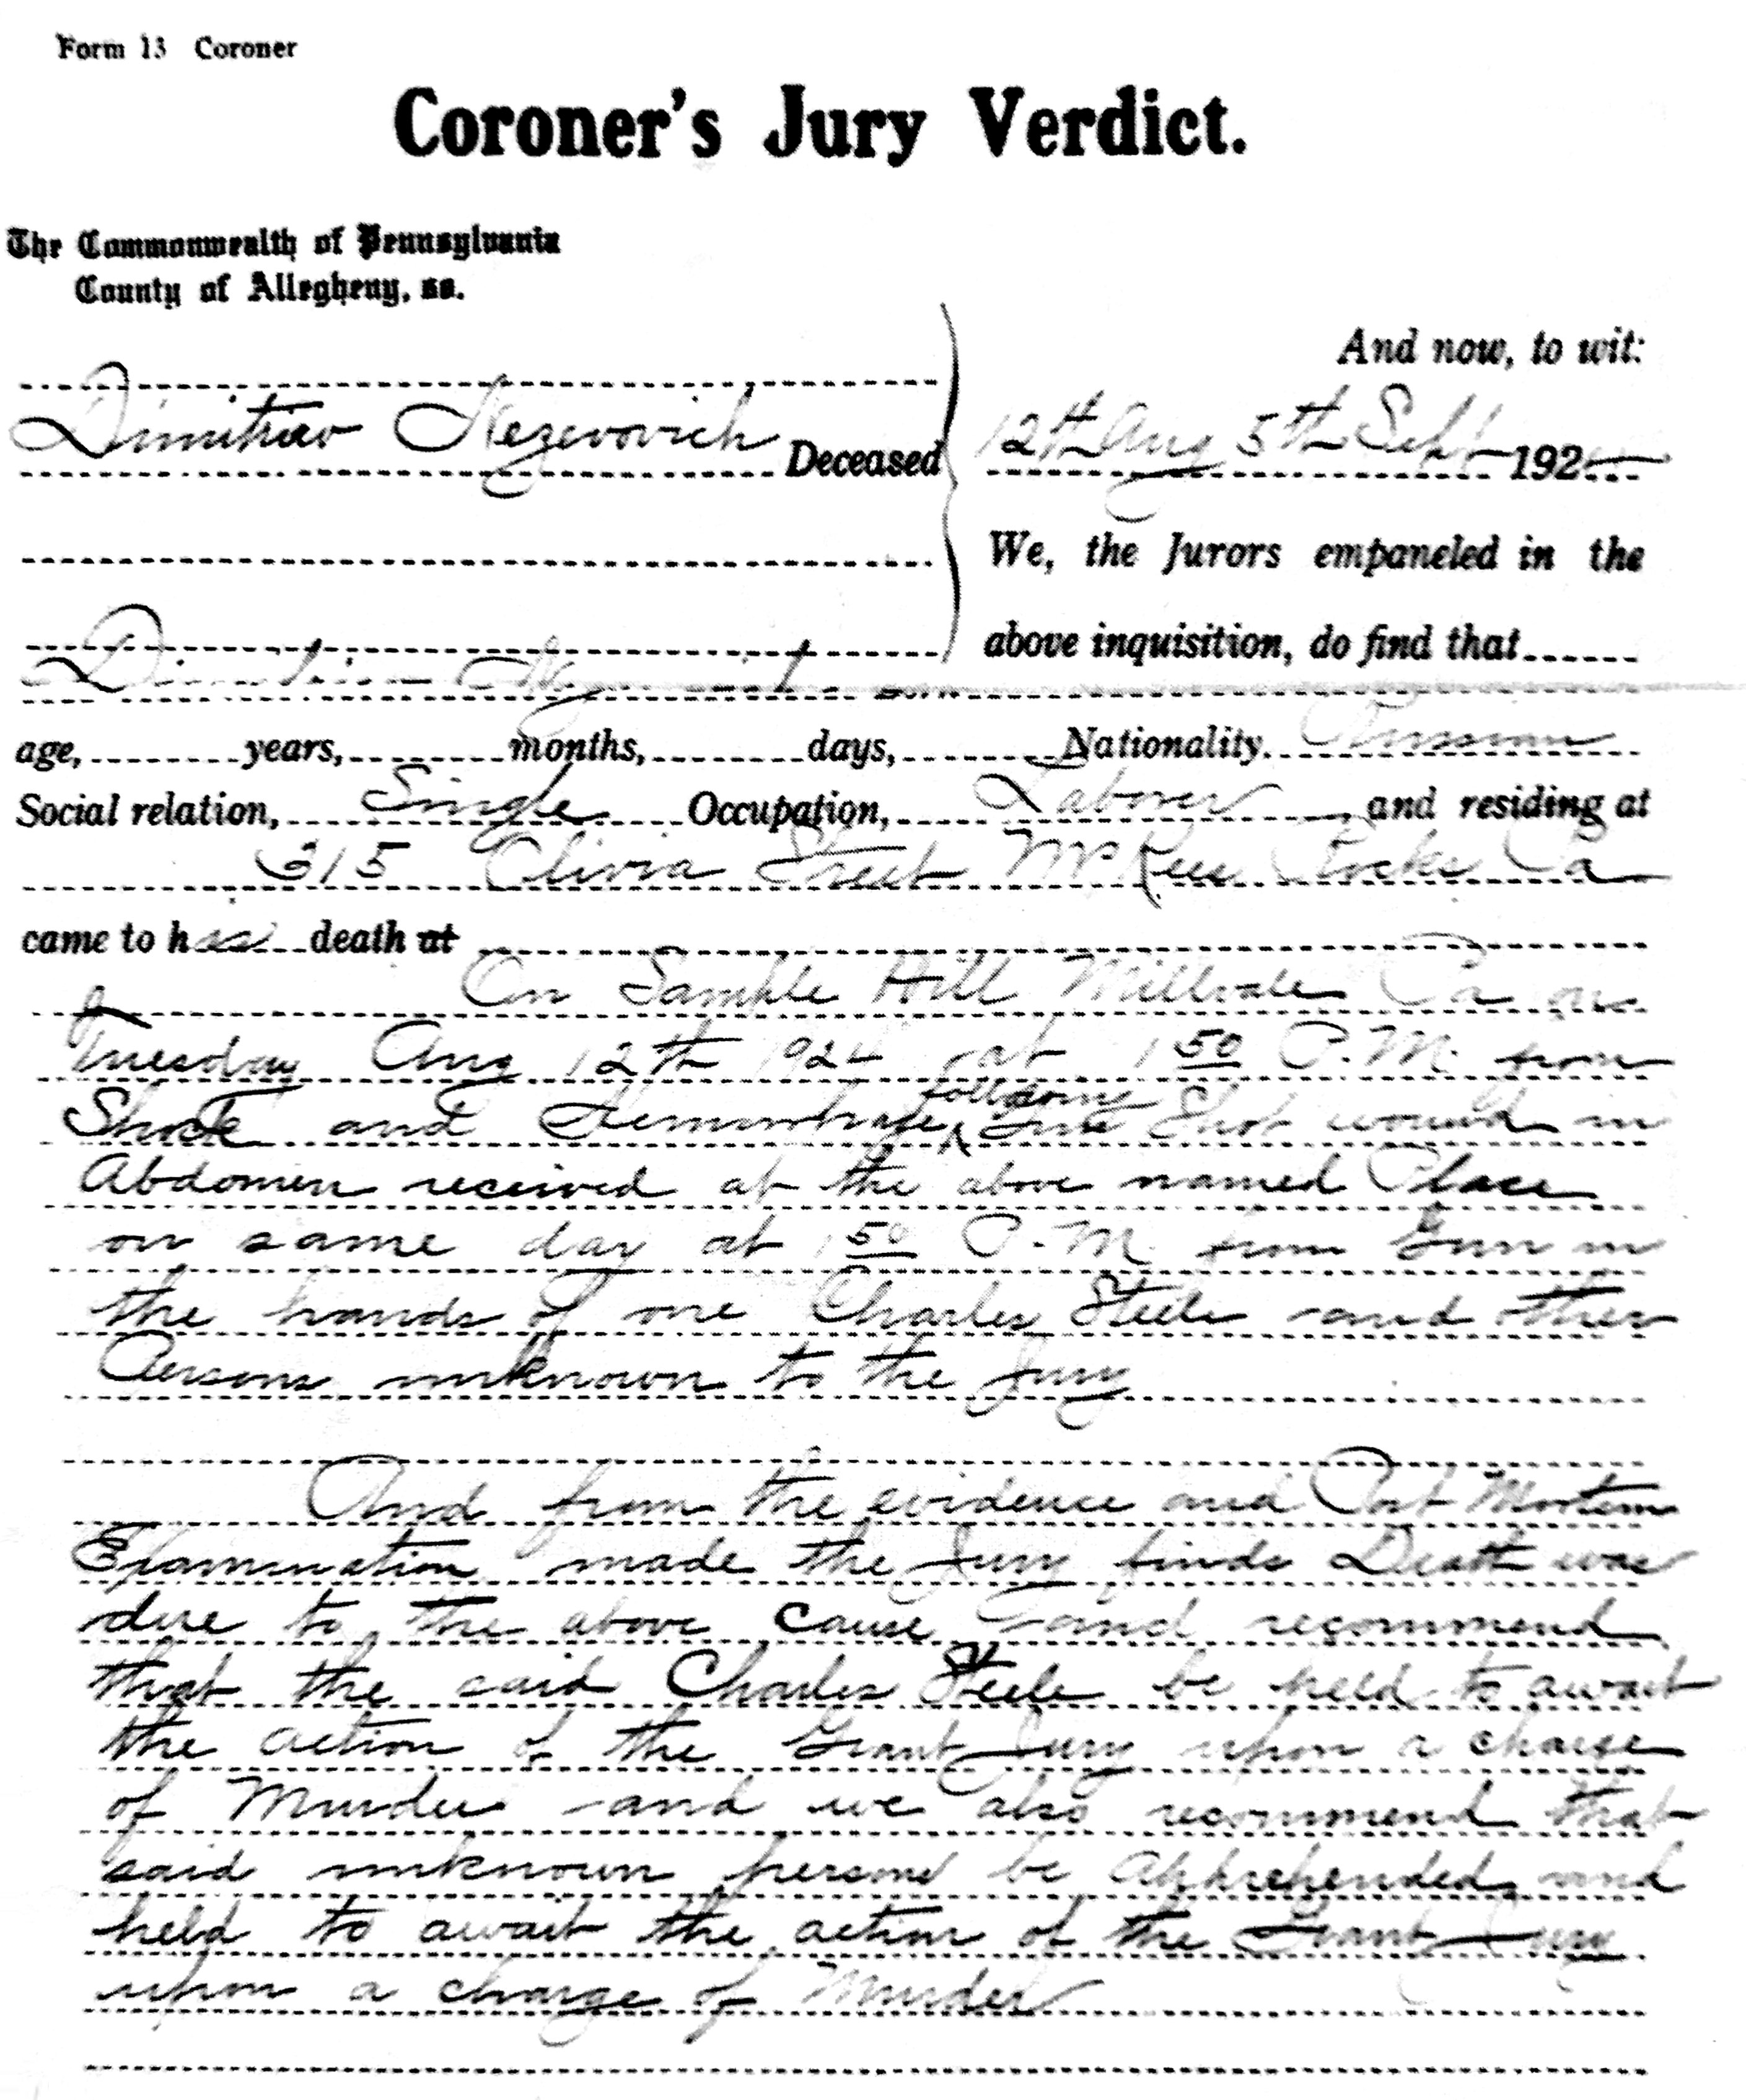 Form 13 Coroner
Coroner's Jury Verdict.
The Commonwealth of Pennsylvania
County of Allegheny, ss.
And now, to wit:
Deceased
12th Aug 5th Sept 192
We, the Jurors empaneled in the
above inquisition, do find that
age, years, months, days, Nationality Russian
Social relation, Single Occupation, Laborer, and residing at
315 Olivia Street McKees Rocks Pa
came to his death at
On Sample Hill Millvale Pa on
Tuesday Aug 12th 1924 at 1 50 P.M. from
Shock and Hemorrhage following Gun Shot wound in
Abdomen received at the above named Place
on same day at 1 50 P.M. from Gun in
the hands of one Charles Steele and other
Persons unknown to the Jury
And from the evidence and Post Mortem
Examination made the Jury finds Death was
due to the above cause and recommend
that the said Charles Steele be held to await
the action of the Grant Jury upon a charge
of Murder and we also recommend that
said unknown persons be apprehended and
held to await the action of the Grant Jury
upon a charge of Murder